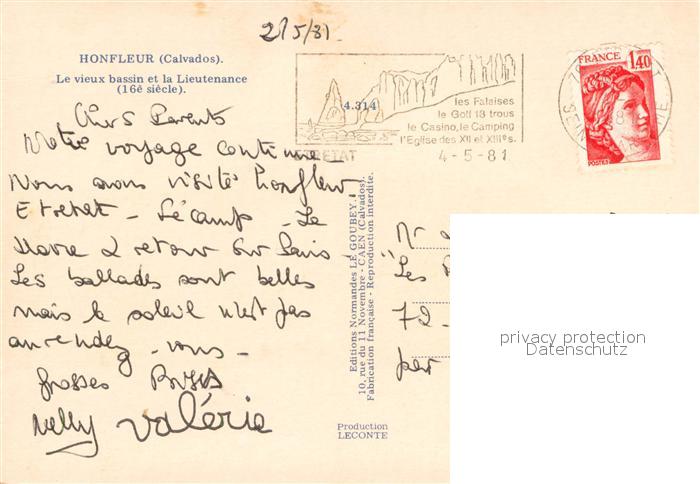 2/5/81
HONFLEUR (Calvados).
Le vieux bassin et la Lieutenance
(16e siècle).
Chers Parents
Notre voyage continue
Nous avons visité Honfleur
Etretat - Fécamp - Le
Havre & retour sur Paris
Les ballades sont belles
mais le soleil n'est pas
au rendez-vous -
Grosses Bises
Nelly Valérie
4.314
les Falaises
le Golf 18 trous
le Casino, le Camping
l'Eglise des XII et XIII s.
ETRETAT
4-5-81
FRANCE 1,40
POSTES
SEINE
Editions Normandes LE GOUBEY.
10, rue du 11 Novembre - CAEN (Calvados).
Fabrication française - Reproduction interdite.
Production
LECONTE
Mr
"Les
72-
par
privacy protection
Datenschutz